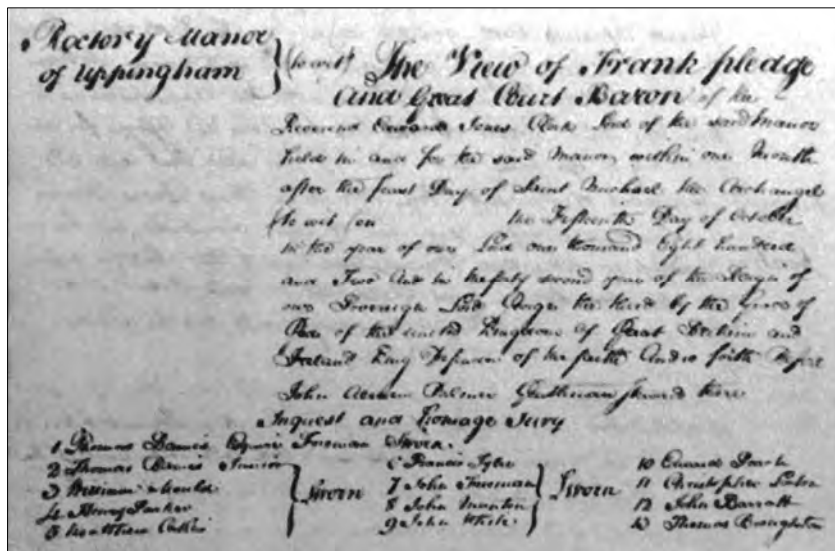 Rectory Manor
of Uppingham
(to wit)
The View of Frank pledge
and Great Court Baron of the
Reverend Edward Jones Clerk Lord of the said Manor
held in and for the said Manor within one Month
after the feast Day of Saint Michael the Archangel
(to wit) on the Fifteenth Day of October
in the year of our Lord one thousand Eight hundred
and Two And in the forty second year of the Reign of
our Sovereign Lord George the third by the Grace of
God of the united Kingdom of Great Britain and
Ireland King Defender of the faith And so forth Before
John Palmer Gentleman Steward there
Inquest and Homage Jury
1 Thomas Foreman Sworn
2 Thomas Junior
3 William Mould
4 Henry Parker
5 Matthew
Sworn
6 Francis Tyler
7 John Freeman
8 John
9 John White
Sworn
10 Edward
11 Christopher
12 John Barratt
13 Thomas Broughton